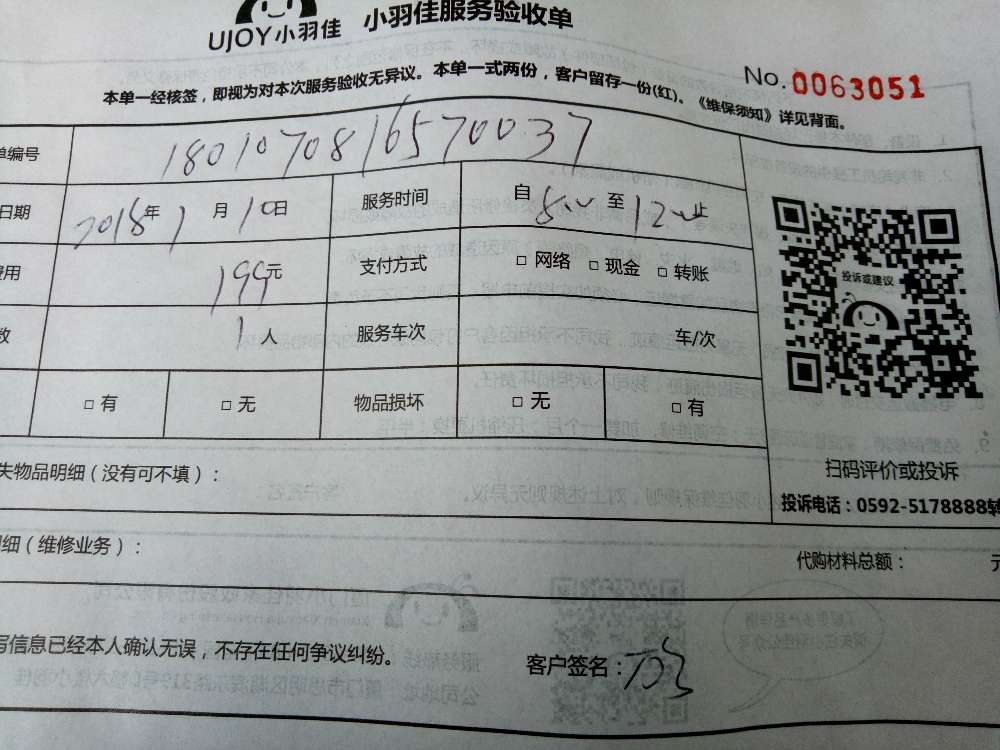 UJOY小羽佳 小羽佳服务验收单
No. 0063051
本单一经核签，即视为对本次服务验收无异议。本单一式两份，客户留存一份(红)。《维保须知》详见背面。
单编号 1801070816570037
日期 2018年 1月 10日 服务时间 自 8:00 至 12:00止
费用 199元 支付方式 □ 网络 □ 现金 □ 转账
数 1人 服务车次 车/次
□ 有 □ 无 物品损坏 □ 无 □ 有
投诉或建议
扫码评价或投诉
投诉电话：0592-5178888转
失物品明细（没有可不填）：
明细（维修业务）： 代购材料总额： 元
写信息已经本人确认无误，不存在任何争议纠纷。
客户签名：